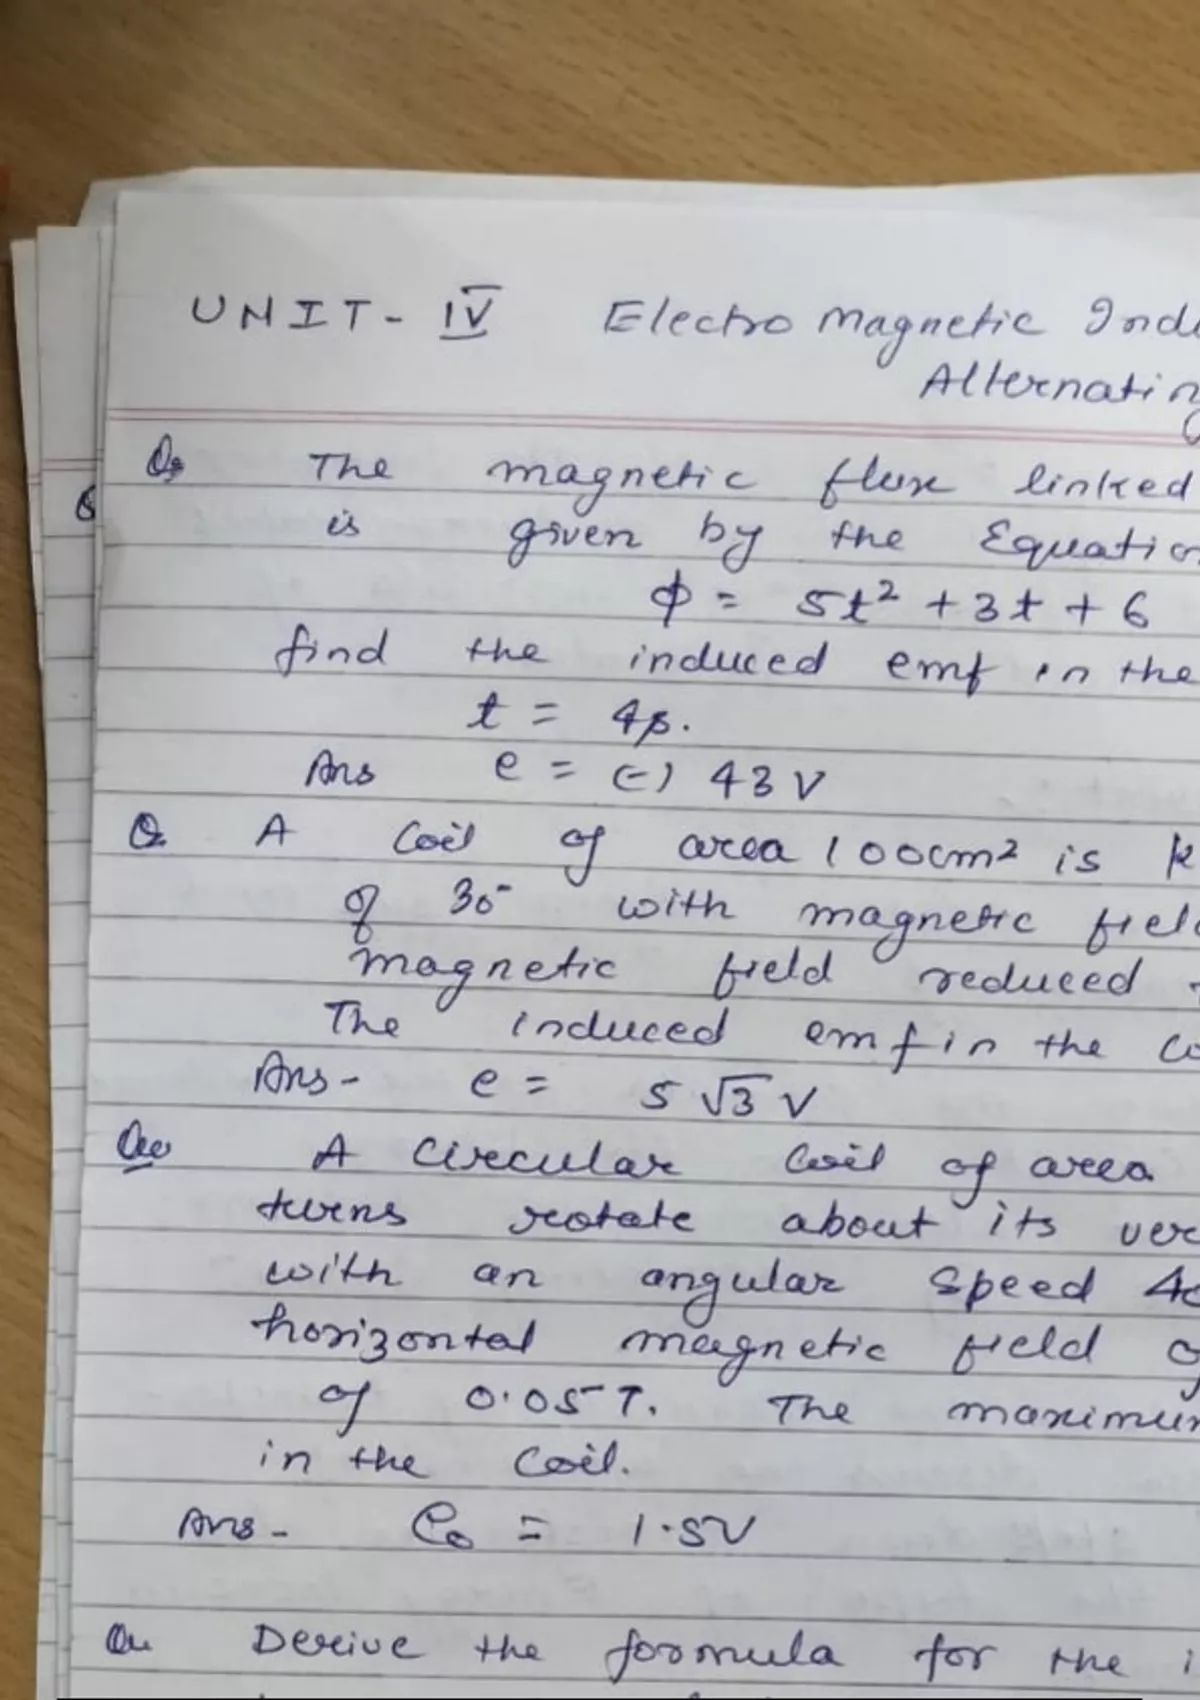 UNIT - IV Electro Magnetic Ind
Alternating
Q. The magnetic flux linked
is given by the Equatio
ϕ = 5t² + 3t + 6
find the induced emf in the
t = 4s.
Ans e = (-) 43 V
Q. A Coil of area 100cm² is k
of 30° with magnetic fiel
magnetic field reduced
The induced emf in the co
Ans - e = 5√3 V
Que A Circular Coil of area
turns rotate about its ver
with an angular speed 40
horizontal magnetic field of
of 0.05 T. The maximum
in the Coil.
Ans - e₀ = 1.5V
Qu Derive the formula for the i